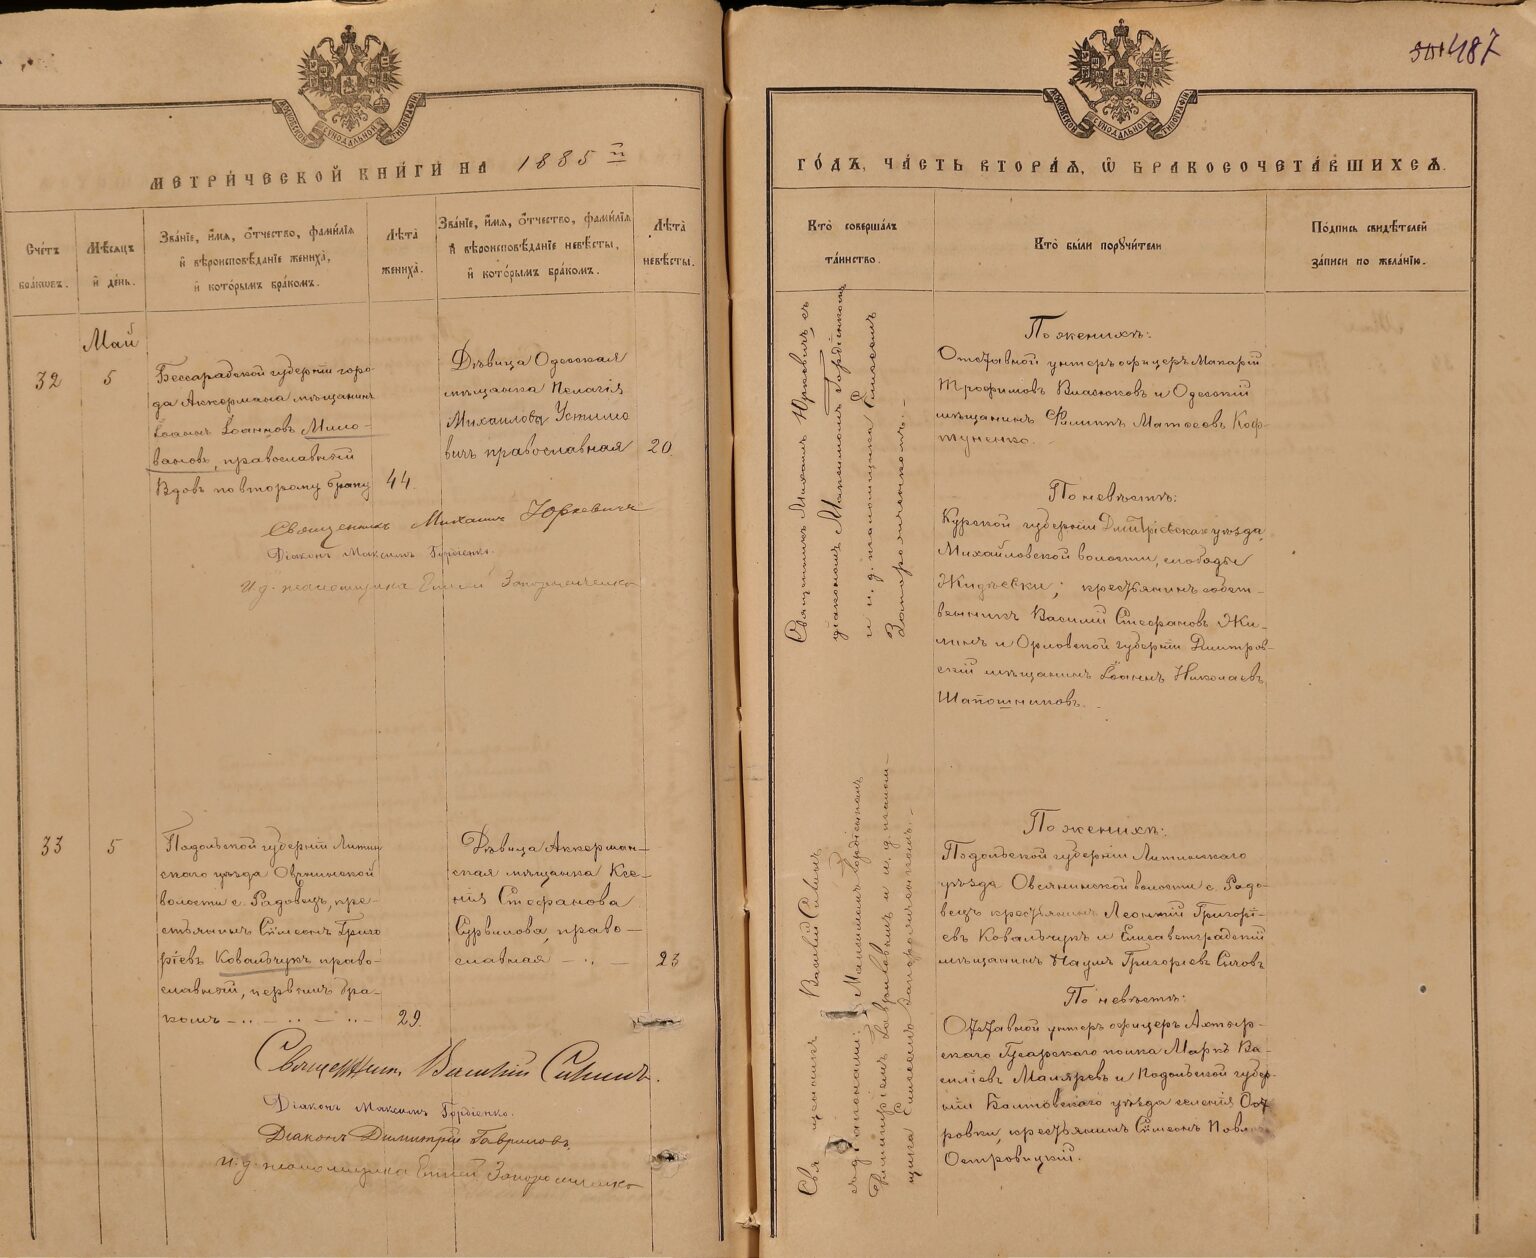 МОСКОВСКОЙ СУНОДАЛЬНОЙ ТИПОГРАФІИ
МЕТРИ́ЧЕСКОЙ КНИ́ГИ НА 1885 й
Сче́тъ бра́ковъ.
Мѣ́сяцъ и҆ де́нь.
Зва́нїе, и҆́мѧ, ѻ҆́тчество, фами́лїѧ
и҆ вѣроисповѣ́данїе жениха̀,
и҆ кото́рымъ бра́комъ.
Лѣ́та жениха̀.
Зва́нїе, и҆́мѧ, ѻ҆́тчество, фами́лїѧ
и҆ вѣроисповѣ́данїе невѣ́сты,
и҆ кото́рымъ бра́комъ.
Лѣ́та невѣ́сты.
Май
32
5
Бессарабской губерніи горо-
да Аккермана мѣщанинъ
Іоаннъ Іоанновъ Мило-
вановъ, православный
Вдовъ по второму браку
44.
Дѣвица Одесская
мѣщанка Пелагія
Михаилова Устимо
вичъ православная
20.
Священникъ Михаилъ Юркевичъ
Діаконъ Максимъ Гордіенко.
И. д. псаломщика Евсей Запорожченко
33
5
Подольской губерніи Литин
скаго уѣзда Овсянинской
волости с. Радовецъ, кре-
стьянинъ Сѵмеонъ Григо
ріевъ Ковальчукъ право-
славный, первымъ бра-
комъ
29.
Дѣвица Аккерман-
ская мѣщанка Ксе-
нія Стефанова
Сурвилова, право-
славная
23
Священникъ Василій Сивинъ.
Діаконъ Максимъ Гордіенко.
Діаконъ Димитрій Гавриловъ
И. д. псаломщика Евсей Запорожченко
487
МОСКОВСКОЙ СУНОДАЛЬНОЙ ТИПОГРАФІИ
ГО́ДЪ, ЧА́СТЬ ВТОРА́Ѧ, Ѽ БРАКОСОЧЕТА́ВШИХСѦ.
Кто̀ соверша́лъ
та́инство.
Кто̀ бы́ли поручи́тели
По́дпись свидѣ́телей
за́писи по жела́нїю.
Священникъ Михаилъ Юркевичъ съ
діакономъ Максимомъ Гордіенкомъ
и и. д. псаломщика Евсеемъ
Запорожченкомъ.
По женихѣ:
Отставной унтеръ офицеръ Макарій
Трофимовъ Власюковъ и Одесскій
мѣщанинъ Филиппъ Матѳеевъ Ков-
туненко.
По невѣстѣ:
Курской губерніи Дмитріевскаго уѣзда,
Михайловской волости, слободы
Жидѣевки; крестьянинъ собст-
венникъ Василій Стефановъ Жи-
линъ и Орловской губерніи Дмитров-
скій мѣщанинъ Іоаннъ Николаевъ
Шапошниковъ.
Священникъ Василій Сивинъ
съ діаконами: Максимомъ Гордіенкомъ
Димитріемъ Гавриловымъ и и. д. псалом-
щика Евсеемъ Запорожченкомъ.
По женихѣ:
Подольской губерніи Литинскаго
уѣзда Овсянинской волости с. Радо-
вецъ крестьянинъ Леонтій Григорі-
евъ Ковальчукъ и Елисаветградскій
мѣщанинъ Наумъ Григоріевъ Сычовъ
По невѣстѣ:
Отставной унтеръ офицеръ Ахтыр-
скаго Гусарскаго полка Маркъ Ва-
силіевъ Маляревъ и Подольской губер-
ніи Балтовскаго уѣзда селенія Ост
ровки, крестьянинъ Сѵмеонъ Павл
Островицкій.